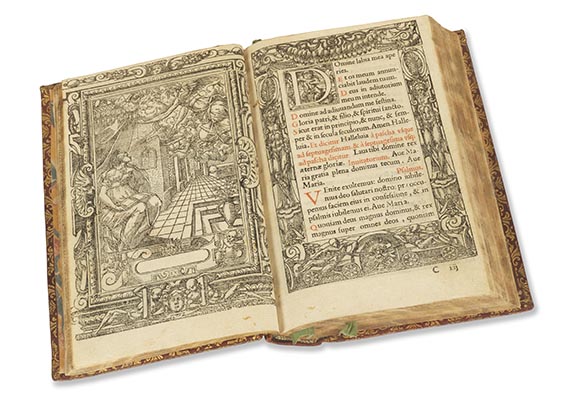 Domine labia mea ape
ries.
Et os meum annun
ciabit laudem tuam.
Deus in adiutorium
meum intende.
Domine ad adiuuandum me festina.
Gloria patri, & filio, & spiritui sancto.
Sicut erat in principio, & nunc, & sem
per & in secula seculorum. Amen. Halle
luia. Et dicitur Halleluia à pascha vsque
ad septuagesimam: & à septuagesima vsque
ad pascha dicitur Laus tibi domine rex
æternæ gloriæ. Inuitatorium. Aue Ma
ria gratia plena dominus tecum. Aue
Maria. Psalmus.
Venite exultemus domino iubile
mus deo salutari nostro: præoccu
pemus faciem eius in confessione, & in
psalmis iubilemus ei. Aue Maria.
Quoniam deus magnus dominus, & rex
magnus super omnes deos, quoniam
C iij